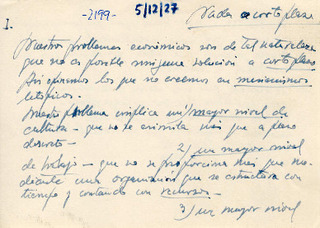 -2199- 5/12/27 Nada a corto plazo
I.
Nuestros problemas económicos son de tal naturaleza
que no es posible ninguna solución a corto plazo
Así opinamos los que no creemos en mecanicismos
utópicos.
Nuestro problema implica un 1/ mayor nivel de
cultura - que no se asimila más que a plazo
2/ un mayor nivel
de trabajo - que no se proporciona más que me-
diante una organización que se estructura con
tiempo y contando con recursos -
3) un mayor nivel